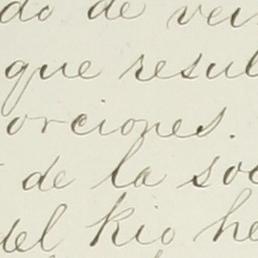 do de vei
que resul
orciones.
de la soc
del Rio he